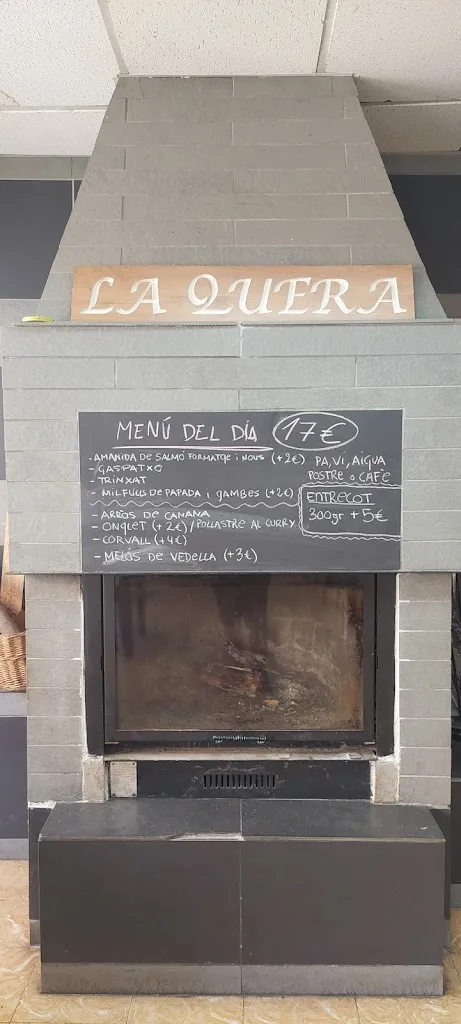 LA QUERA
MENÚ DEL DÍA 17€
- AMANIDA DE SALMÓ FORMATGE i NOUS (+2€)
- GASPATXO
- TRINXAT
- MILFULLS DE PAPADA i GAMBES (+2€)
- ARRÒS DE CANANA
- ONGLET (+2€)/POLLASTRE AL CURRY
- CORVALL (+4€)
- MELÓS DE VEDELLA (+3€)
PA, VI, AIGUA
POSTRE o CAFÈ
ENTRECOT
300gr +5€